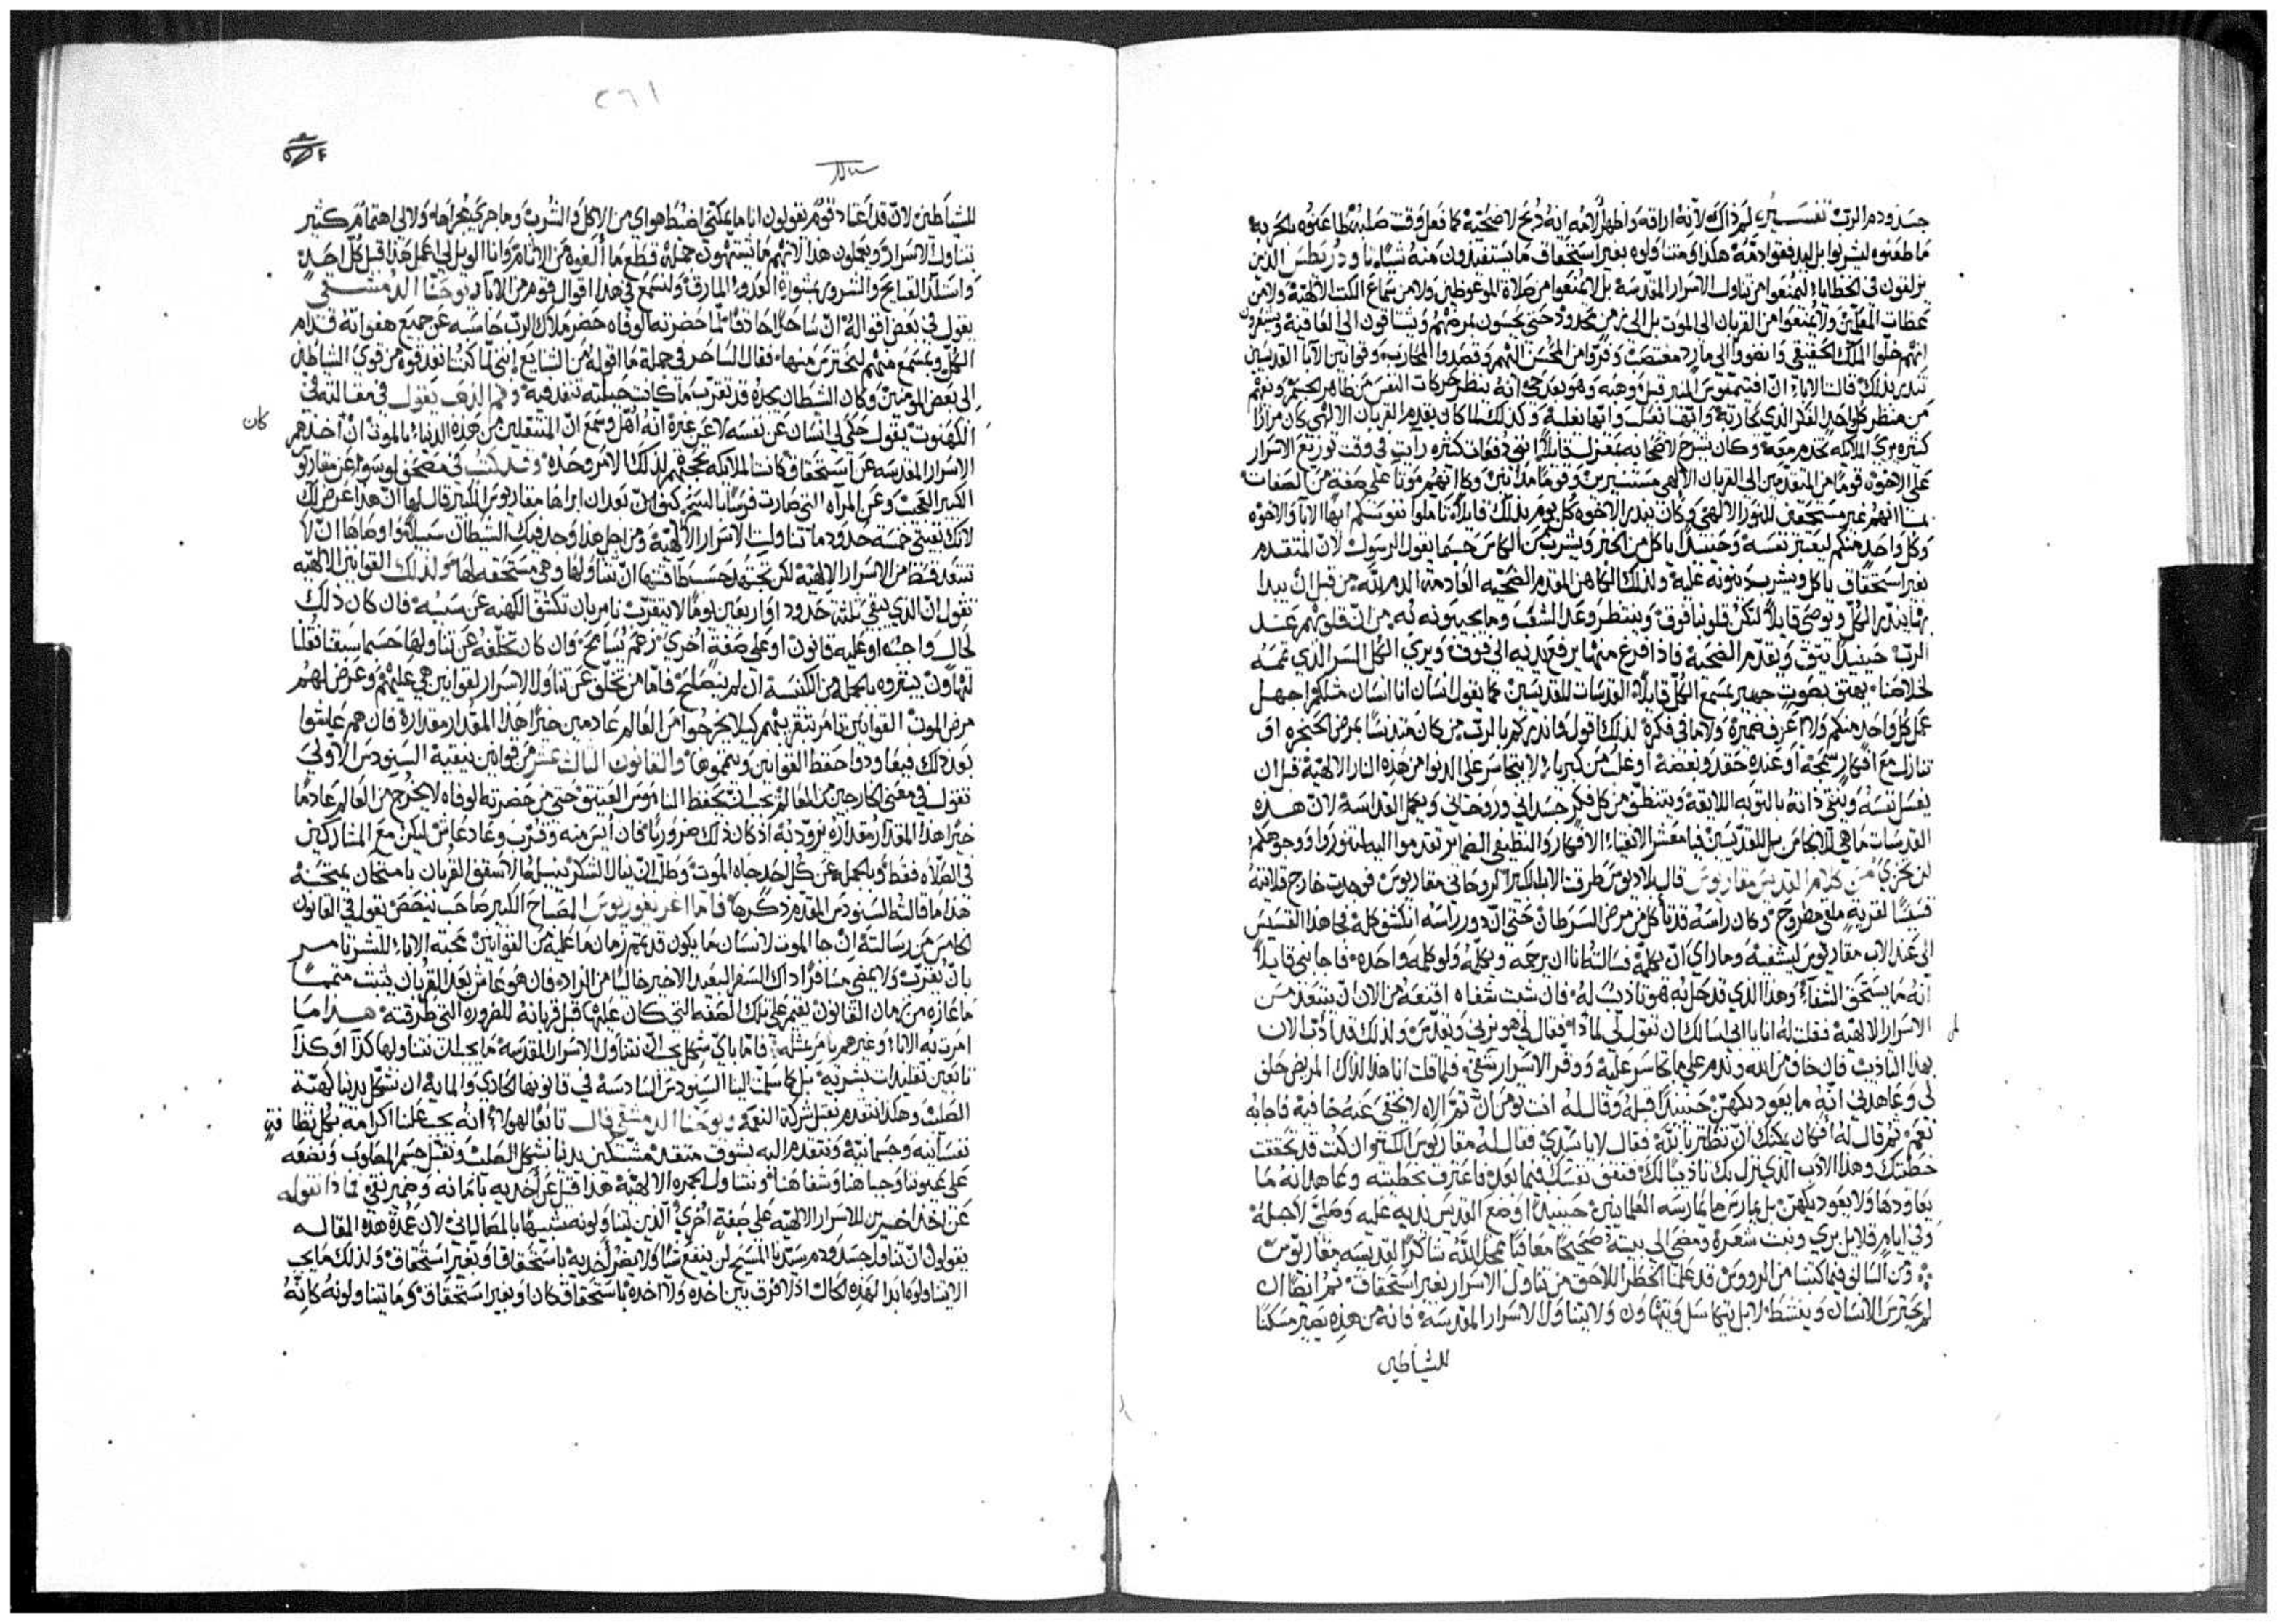 جسد ودم الرب تفسير لم ذاك لانه اراقه واظهر الامه انه ذبح لاضحية كما فعل وقت صلبه لما طعنوه بالحربه
ما طعنوه ليشربوا بل ليدفقوا دمه هكذا ومتناولوه بغير استحقاق ما يستفيدون منه شياء
يزلفون في الخطايا ليمنعوا من تناول الاسرار المقدسه بل لا يمنعوا من صلاة الموعوظين ولا من سماع الكتب الالهية ولا من
عظات المعلمين ولا يمنعوا من القربان الى الموت بل الى زمن محدود حتى يحسون بمرضهم ويشتاقون الى العافية ويشعرون
انهم خلوا الملك الحقيقي وانضووا الى مارد مغتصب وفروا من المحسن اليهم وقصدوا المحارب وقوانين الابا القديسين
من منظر كل واحد القدر الذي كان رتبة وانها نفسك وكذلك لما كان يقدم القربان الالهي كان مرارا
كثيره يرى الملايكه تخدم معه وكان يشرح لاصحابه بمعزل قايلا انني دفعات كثيره رايت في وقت توزيع الاسرار
على الاخوه قوما من المتقدمين الى القربان الالهي مستنيرين وقوما مدلهمين وكانهم موتا على صفة من الصفات
بما انهم غير مستحقين للنور الالهي وكان ينذر الاخوه كل يوم بذلك قايلا تاملوا نفوسكم ايها الابا والاخوه
وكل واحد منكم ليعتبر نفسه وحينيذ اياكل من الخبز ويشرب من الكاس حسبما يقول الرسول لان المتقدم
بغير استحقاق ياكل ويشرب دينونه عليه ولذلك الكاهن المقدم الضحيه العادمة الدم لله من قبل ان يبدا
بها ينذر الكل ويوصي قايلا لتكن قلوبنا فوق وينتظر وعد الشعب وما يجيبونه به من ان قلوبهم عند
الرب حينيذ يثق ويقدم الضحية فاذا فرغ منها يرفع يديه الى فوق ويري الكل السر الذي تممه
لخلاصنا يهتف بصوت جهير يسمع الكل قايلا القدسات للقديسين كما يقول انسان انا انسان مثلكم اجهل
عمل كل واحد منكم ولا اعرف ضميره ولا ما في فكره لذلك اقول وانذركم بالرب من كان متدنسا بمرض الحنجره او
تنازل مع افكار سمجة او عنده حقد وبغضة او غل من كبرياء لا يتجاسر على الدنوا من هذه النار الالهية قبل ان
يغسل نفسه وينقي ذاته بالتوبه اللايقه ويتنظف من كل فكر جسداني وروحاني ويكمل القداسة لان هذه
القدسات ما هي للانجاس بل للقديسين فيا معشر الانقياء الافكار والنظيفي الضمائر تقدموا اليه لتنوروا ووجوهكم
لن تخزى من كلام القديس مقاريوس قال بلاديوس طرقت الاب الكبير الروحاني مقاريوس فوجدت خارج قلايته
قسيسا لقرية ملقى مطروح وكان راسه قد تاكل من مرض السرطان حتى ان دور راسه انكشف كله فجا هذا القسيس
الى عند الاب مقاريوس ليشفيه وما راى ان يكلمه فسالته انا ان يرحمه ويكلمه ولو كلمه واحده فاجابني قايلا
انه ما يستحق الشفاء وهذا الذي قد حل به هو تاديب له فان شيت شفاه اقنعه من الان ان يبتعد من
الاسرار الالهية فقلت له انا يا ابي اسالك ان تقول لي لماذا فقال لي هو يزني ويقدس ولذلك قد ادب الان
بهذا التاديب فان خاف من الله وندم على ما تجاسر عليه ووقر الاسرار شفي فلما قلت انا هذا لذاك المريض حلف
لي وعاهدني انه ما يعود يكهن حينيذ قبله وقال له انت تومن ان ثم الاه لا يخفى عنه خافية فاجابه
نعم ثم قال له افكان يمكنك ان تظفر بالله فقال لا يا سيدي فقال له مقاريوس الكبير ان كنت قد تحققت
خطيتك وهذا الادب الذي نزل بك تاديبا لك فتقف نفسك فيما بعد فاعترف بخطيته وعاهد انه ما
يعاودها ولا يعود يكهن بل يمارس ما يمارسه العلمانيين حينيذ اوضع القديس يديه عليه وصلى لاجله
وفي ايام قلايل بري ونبت شعره ومضى الى بيته صحيحا معافيا ممجدا لله شاكرا لقديسه مقاريوس
ومن السالف فيما كتبنا من الرووس قد علمنا الخطر اللاحق من تناول الاسرار بغير استحقاق ثم ايضا ان
لم يحترس الانسان وينشط لابل يتكاسل ويتهاون ولا يتناول الاسرار المقدسه فانه من هذه يصير مسكنا
للشياطين
٢٦١
للشياطين لان قد اعتاد قوم يقولون انا ما يمكنني اضبط هواي من الاكل والشرب وما جرى مجراها ولا لي اهتمام كثير
تناول الاسرار ويعملون هذا لانهم ما يشتهون جملة قطع ما الفوه من الاثام وانا الويل لي اعمل هذا قبل كل احد
واستلذ القبايح والشرور بمشورة العدو المارق ولنسمع في هذا اقوال قوم من الابا يوحنا الدمشقي
يقول في بعض اقواله ان ساحرا حاذقا لما حضرته الوفاه حضر ملاك الرب حاسبه عن جميع هفواته قدام
الكل ويسمع منهم ليحترس منها فقال الساحر في جملة ما اقوله من الشنايع انني لما كنت انفذ قوه من قوى الشياطين
الى بعض المومنين وكان الشيطان يجده قد تقرب ما كانت حيلته تنفذ فيه وفم الذهب يقول في مقالته في
الكهنوت يقول حكى لي انسان عن نفسه لا عن غيره انه اهل وسمع ان المنتقلين من هذه الدنيا بالموت ان اخذهم كان
الاسرار المقدسه عن استحقاق كانت الملايكه تحجبهم لذلك الامر وحده وقد كتب في مصحف عن مقاريو
الكبير العجب وعن المرآه التي صارت فرسا بالسحر كيف انه بعد ان ابراها مقاريوس الكبير قال لها ان هذا عرض لك
لانك بقيتي خمسه حدود ما تناولت الاسرار الالهية ومن اجل هذا وجد فيك الشيطان سبيلا واوصاها ان لا
تبتعد قط من الاسرار الالهية لكن تجتهد حسب طاقتها ان تتناولها وهي مستحقه لها ولذلك القوانين الالهيه
تقول ان الذي يبقى ثلثة حدود او اربعين يوما لا يتقرب تامر بان تكشف الكهنه عن سببه فان كان ذلك
لحال واجبه او عليه قانون او على صفة اخرى زعم تسامح وان كان تخلفه عن تناولها حسبما سبقنا قلنا
تهاون يفروه بالجملة من الكنيسة ان لم يصطلح فاما من تخلف عن تناول الاسرار لقوانين هي عليهم وعرض لهم
مرض الموت القوانين تامر بتقريبهم كيلا يخرجوا من العالم عادمين خيرا هذا المقدار مقداره فان هم عاشوا
بعد ذلك فيعاودوا حفظ القوانين ويتموها والقانون الثالث عشر من قوانين نيقية السينودس الاولى
تقول في معنى الخارجين من العالم يجب ان يحفظ الناموس العتيق حتى من حضرته الوفاه لا يخرج من العالم عادما
خيرا هذا المقدار مقداره نزوده اذ كان ذلك ضروريا فان ايس منه وقرب وعاد عاش ليكن مع المشاركين
في الصلاه فقط وبالجملة عن كل احد جاه الموت وطلب ان ينال الشكر ينيله الاسقف القربان بامتحان يمتحنه
هذا ما قالته السنودس المقدم ذكرها فاما اغريغوريوس المصباح الكبير صاحب نيصص يقول في القانون
الخامس من رسالته ان جا الموت لانسان ما يكون قد تم زمان ما عليه من القوانين محبة الاباء للبشر تامر
بان يقرب ولا يمضي مسافرا ذاك السفر البعيد الاخير خاليا من الزاد فان هو عاش بعد القربان يثبت متمما
ما عازه من زمان القانون يقيم على تلك الصفه التي كان عليها قبل قربانه للضروره التي طرقته هذا ما
امرت به الاباء وغيرهم يامر بمثله فاما باي شكل يجب ان نتناول الاسرار المقدسه ما يجب ان نتناولها كذا او كذا
تابعين تقليدات بشريه بل كما سلمت الينا السينودس السادسة في قانونها الحادي والمايه ان نشكل يدينا كهيئة
الصليب وهكذا نتقدم نقبل شركة النعمه ويوحنا الدمشقي قال تابعا لهولاء انه يجب علينا اكرامه بكل نظافه
نفسانيه وجسمانية ونتقدم اليه بشوق متقد مشتبكين يدينا بشكل الصليب ونقبل جسم المصلوب ونضعه
على عيوننا وجباهنا وشفاهنا ونتناول الجمره الالهية هذا قبل عن اخذيه بامانه وضمير نقي فماذا نقوله
عن اخذ اخرين للاسرار الالهيه على صفة اخرى الذين يتناولونه شبيها بالمصاليانين لان عمدة هذه المقاله
يقولون ان تناول جسد ودم سيدنا المسيح لن ينفع شيا ولا يضر اخذيه باستحقاق او بغير استحقاق ولذلك ما يجب
الا يتناولوه ابدا لهذه الحال اذ لا فرق بين اخذه ولا اخذه باستحقاق كان او بغير استحقاق وما يتناولونه كانه